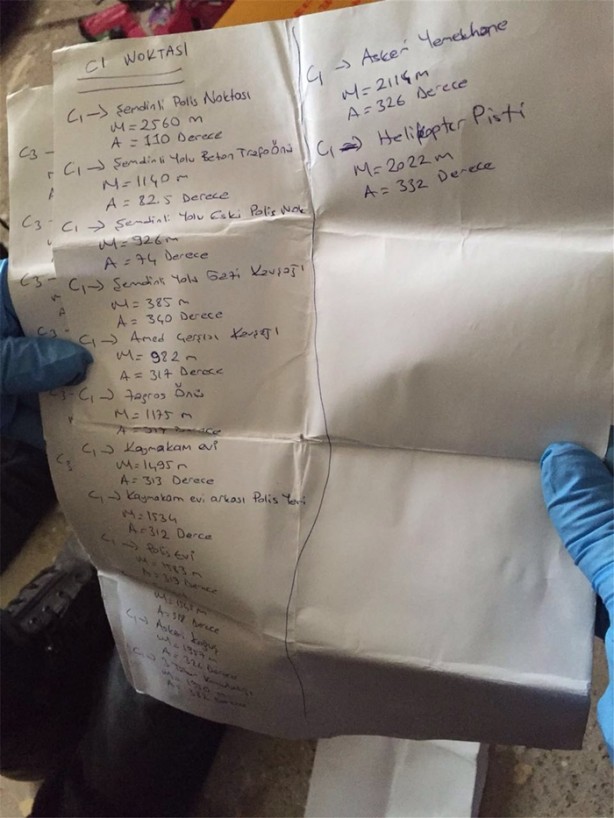 C1 NOKTASI
C1 → Şemdinli Polis Noktası
M = 2560 m
A = 110 Derece
C1 → Şemdinli Yolu Beton Trafo Önü
M = 1140 m
A = 82.5 Derece
C1 → Şemdinli Yolu Eski Polis Nok
M = 926 m
A = 74 Derece
C1 → Şemdinli Yolu Gezi Kavşağı
M = 385 m
A = 340 Derece
C1 → Amed Çarşısı Kavşağı
M = 982 m
A = 317 Derece
C1 → Zagros Önü
M = 1175 m
C1 → Kaymakam evi
M = 1495 m
A = 313 Derece
C1 → Kaymakam evi arkası Polis Yeri
M = 1534
A = 312 Derece
C1 → Polis Evi
A = 319 Derece
C1 → Askeri
C1 → Askeri Yemekhane
M = 2114 m
A = 326 Derece
C1 → Helikopter Pisti
M = 2022 m
A = 332 Derece
C3
C3
C3
C3
C3
C3